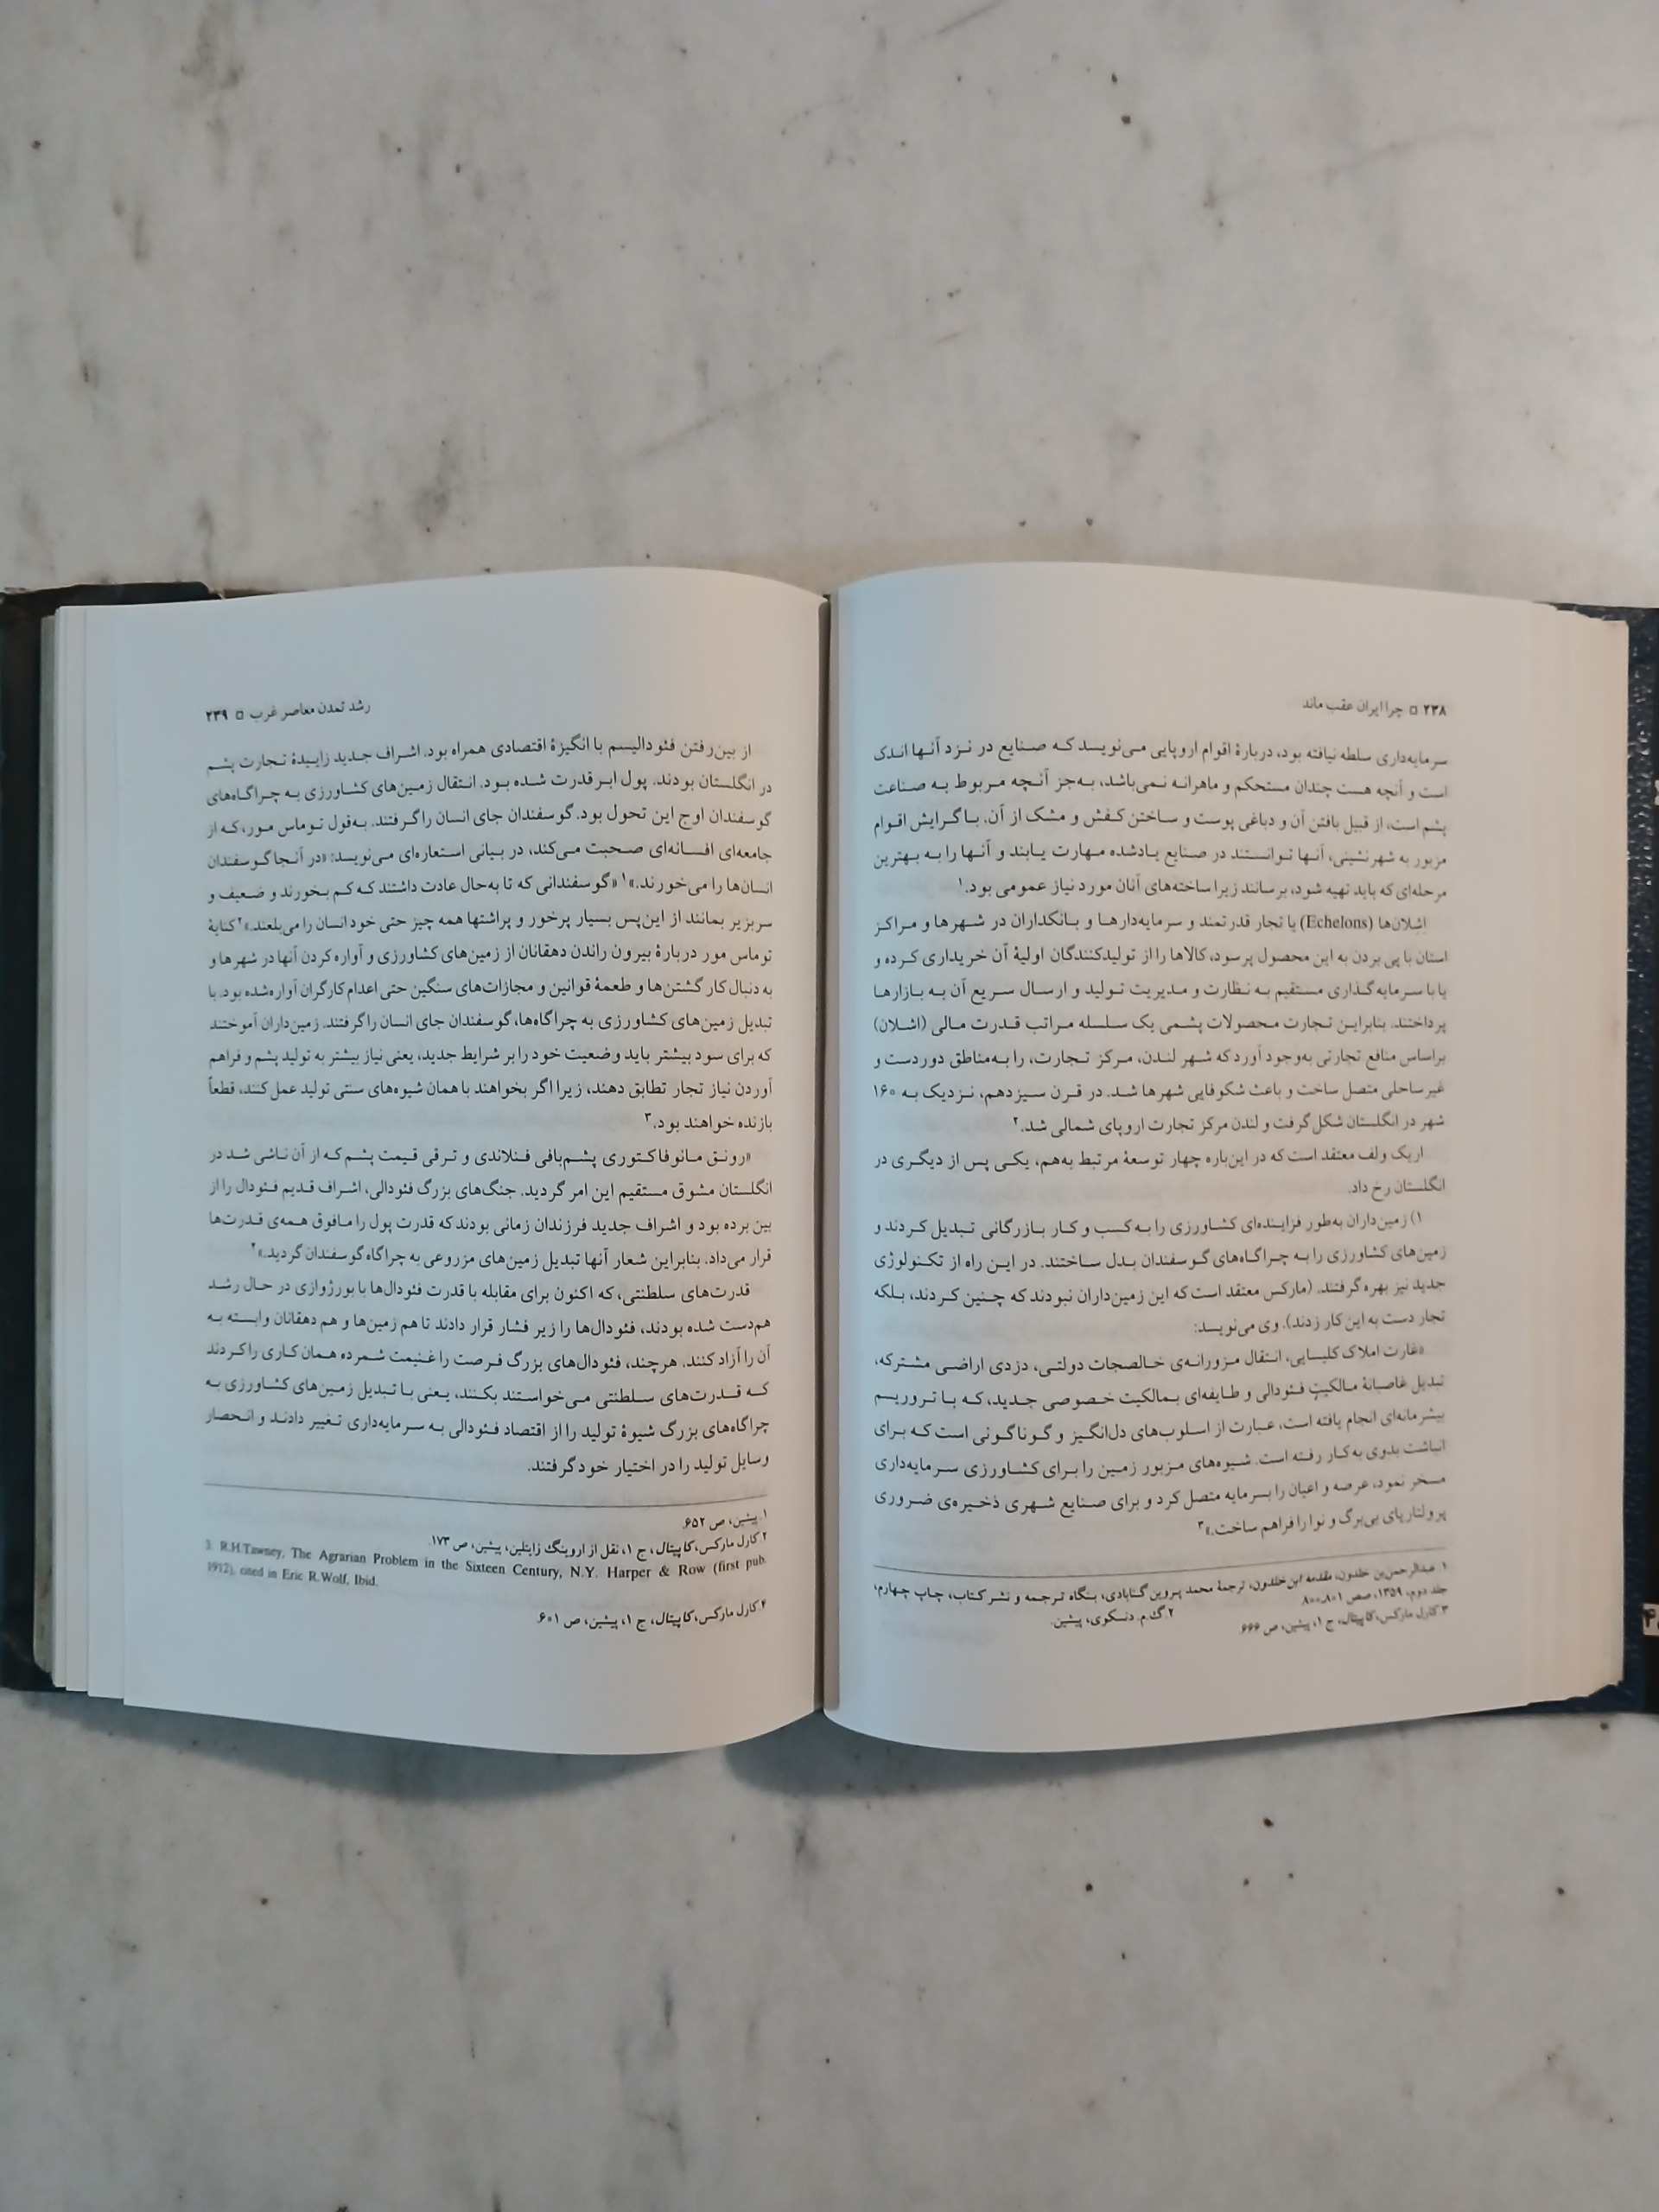 ۲۳۸ □ چرا ایران عقب ماند
سرمایه‌داری سلطه نیافته بود، دربارهٔ اقوام اروپایی می‌نویسد که صنایع در نزد آنها اندک
است و آنچه هست چندان مستحکم و ماهرانه نمی‌باشد، به‌جز آنچه مربوط به صناعت
پشم است، از قبیل بافتن آن و دباغی پوست و ساختن کفش و مشک از آن. با گرایش اقوام
مزبور به شهرنشینی، آنها توانستند در صنایع یادشده مهارت یابند و آنها را به بهترین
مرحله‌ای که باید تهیه شود، برسانند زیرا ساخته‌های آنان مورد نیاز عمومی بود.۱
اشلان‌ها (Echelons) یا تجار قدرتمند و سرمایه‌دارها و بانکداران در شهرها و مراکز
استان با پی بردن به این محصول پرسود، کالاها را از تولیدکنندگان اولیهٔ آن خریداری کرده و
یا با سرمایه‌گذاری مستقیم به نظارت و مدیریت تولید و ارسال سریع آن به بازارها
پرداختند. بنابراین تجارت محصولات پشمی یک سلسله مراتب قدرت مالی (اشلان)
براساس منافع تجارتی به‌وجود آورد که شهر لندن، مرکز تجارت، را به‌مناطق دوردست و
غیرساحلی متصل ساخت و باعث شکوفایی شهرها شد. در قرن سیزدهم، نزدیک به ۱۶۰
شهر در انگلستان شکل گرفت و لندن مرکز تجارت اروپای شمالی شد.۲
اریک ولف معتقد است که در این‌باره چهار توسعهٔ مرتبط به‌هم، یکی پس از دیگری در
انگلستان رخ داد.
۱) زمین‌داران به‌طور فزاینده‌ای کشاورزی را به کسب و کار بازرگانی تبدیل کردند و
زمین‌های کشاورزی را به چراگاه‌های گوسفندان بدل ساختند. در این راه از تکنولوژی
جدید نیز بهره گرفتند. (مارکس معتقد است که این زمین‌داران نبودند که چنین کردند، بلکه
تجار دست به این کار زدند). وی می‌نویسد:
«غارت املاک کلیسایی، انتقال مزورانه‌ی خالصجات دولتی، دزدی اراضی مشترکه،
تبدیل غاصبانهٔ مالکیتِ فئودالی و طایفه‌ای بمالکیت خصوصی جدید، که با تروریسم
بیشرمانه‌ای انجام یافته است، عبارت از اسلوب‌های دل‌انگیز و گوناگونی است که برای
انباشت بدوی به‌کار رفته است. شیوه‌های مزبور زمین را برای کشاورزی سرمایه‌داری
مسخر نمود، عرصه و اعیان را بسرمایه متصل کرد و برای صنایع شهری ذخیره‌ی ضروری
پرولتاریای بی‌برگ و نوا را فراهم ساخت.»۳
۱. عبدالرحمن‌بن خلدون، مقدمه ابن‌خلدون، ترجمهٔ محمد پروین گنابادی، بنگاه ترجمه و نشر کتاب، چاپ چهارم،
جلد دوم، ۱۳۵۹، صص ۸۰۱ـ۸۰۰.
۲. گ.م. دنسکوی، پیشین.
۳. کارل مارکس، کاپیتال، ج ۱، پیشین، ص ۶۶۶.
رشد تمدن معاصر غرب □ ۲۳۹
از بین‌رفتن فئودالیسم با انگیزهٔ اقتصادی همراه بود. اشراف جدید زاییدهٔ تجارت پشم
در انگلستان بودند. پول ابرقدرت شده بود. انتقال زمین‌های کشاورزی به چراگاه‌های
گوسفندان اوج این تحول بود. گوسفندان جای انسان را گرفتند. به‌قول توماس مور، که از
جامعه‌ای افسانه‌ای صحبت می‌کند، در بیانی استعاره‌ای می‌نویسد: «در آنجا گوسفندان
انسان‌ها را می‌خورند.»۱ «گوسفندانی که تا به‌حال عادت داشتند که کم بخورند و ضعیف و
سربزیر بمانند از این‌پس بسیار پرخور و پراشتها همه چیز حتی خود انسان را می‌بلعند.»۲ کنایهٔ
توماس مور دربارهٔ بیرون راندن دهقانان از زمین‌های کشاورزی و آواره کردن آنها در شهرها و
به دنبال کار گشتن‌ها و طعمهٔ قوانین و مجازات‌های سنگین حتی اعدام کارگران آواره‌شده بود. با
تبدیل زمین‌های کشاورزی به چراگاه‌ها، گوسفندان جای انسان را گرفتند. زمین‌داران آموختند
که برای سود بیشتر باید وضعیت خود را بر شرایط جدید، یعنی نیاز بیشتر به تولید پشم و فراهم
آوردن نیاز تجار تطابق دهند، زیرا اگر بخواهند با همان شیوه‌های سنتی تولید عمل کنند، قطعاً
بازنده خواهند بود.۳
«رونق مانوفاکتوری پشم‌بافی فنلاندی و ترقی قیمت پشم که از آن ناشی شد در
انگلستان مشوق مستقیم این امر گردید. جنگ‌های بزرگ فئودالی، اشراف قدیم فئودال را از
بین برده بود و اشراف جدید فرزندان زمانی بودند که قدرت پول را مافوق همه‌ی قدرت‌ها
قرار می‌داد. بنابراین شعار آنها تبدیل زمین‌های مزروعی به چراگاه گوسفندان گردید.»۴
قدرت‌های سلطنتی، که اکنون برای مقابله با قدرت فئودال‌ها با بورژوازی در حال رشد
هم‌دست شده بودند، فئودال‌ها را زیر فشار قرار دادند تا هم زمین‌ها و هم دهقانان وابسته به
آن را آزاد کنند. هرچند، فئودال‌های بزرگ فرصت را غنیمت شمرده همان کاری را کردند
که قدرت‌های سلطنتی می‌خواستند بکنند، یعنی با تبدیل زمین‌های کشاورزی به
چراگاه‌های بزرگ شیوهٔ تولید را از اقتصاد فئودالی به سرمایه‌داری تغییر دادند و انحصار
وسایل تولید را در اختیار خود گرفتند.
۱. پیشین، ص ۶۵۲.
۲. کارل مارکس، کاپیتال، ج ۱، نقل از اروینگ زایتلین، پیشین، ص ۱۷۳.
3. R.H.Tawney, The Agrarian Problem in the Sixteen Century, N.Y. Harper & Row (first pub.
1912), cited in Eric R.Wolf, Ibid.
۴. کارل مارکس، کاپیتال، ج ۱، پیشین، ص ۶۰۱.